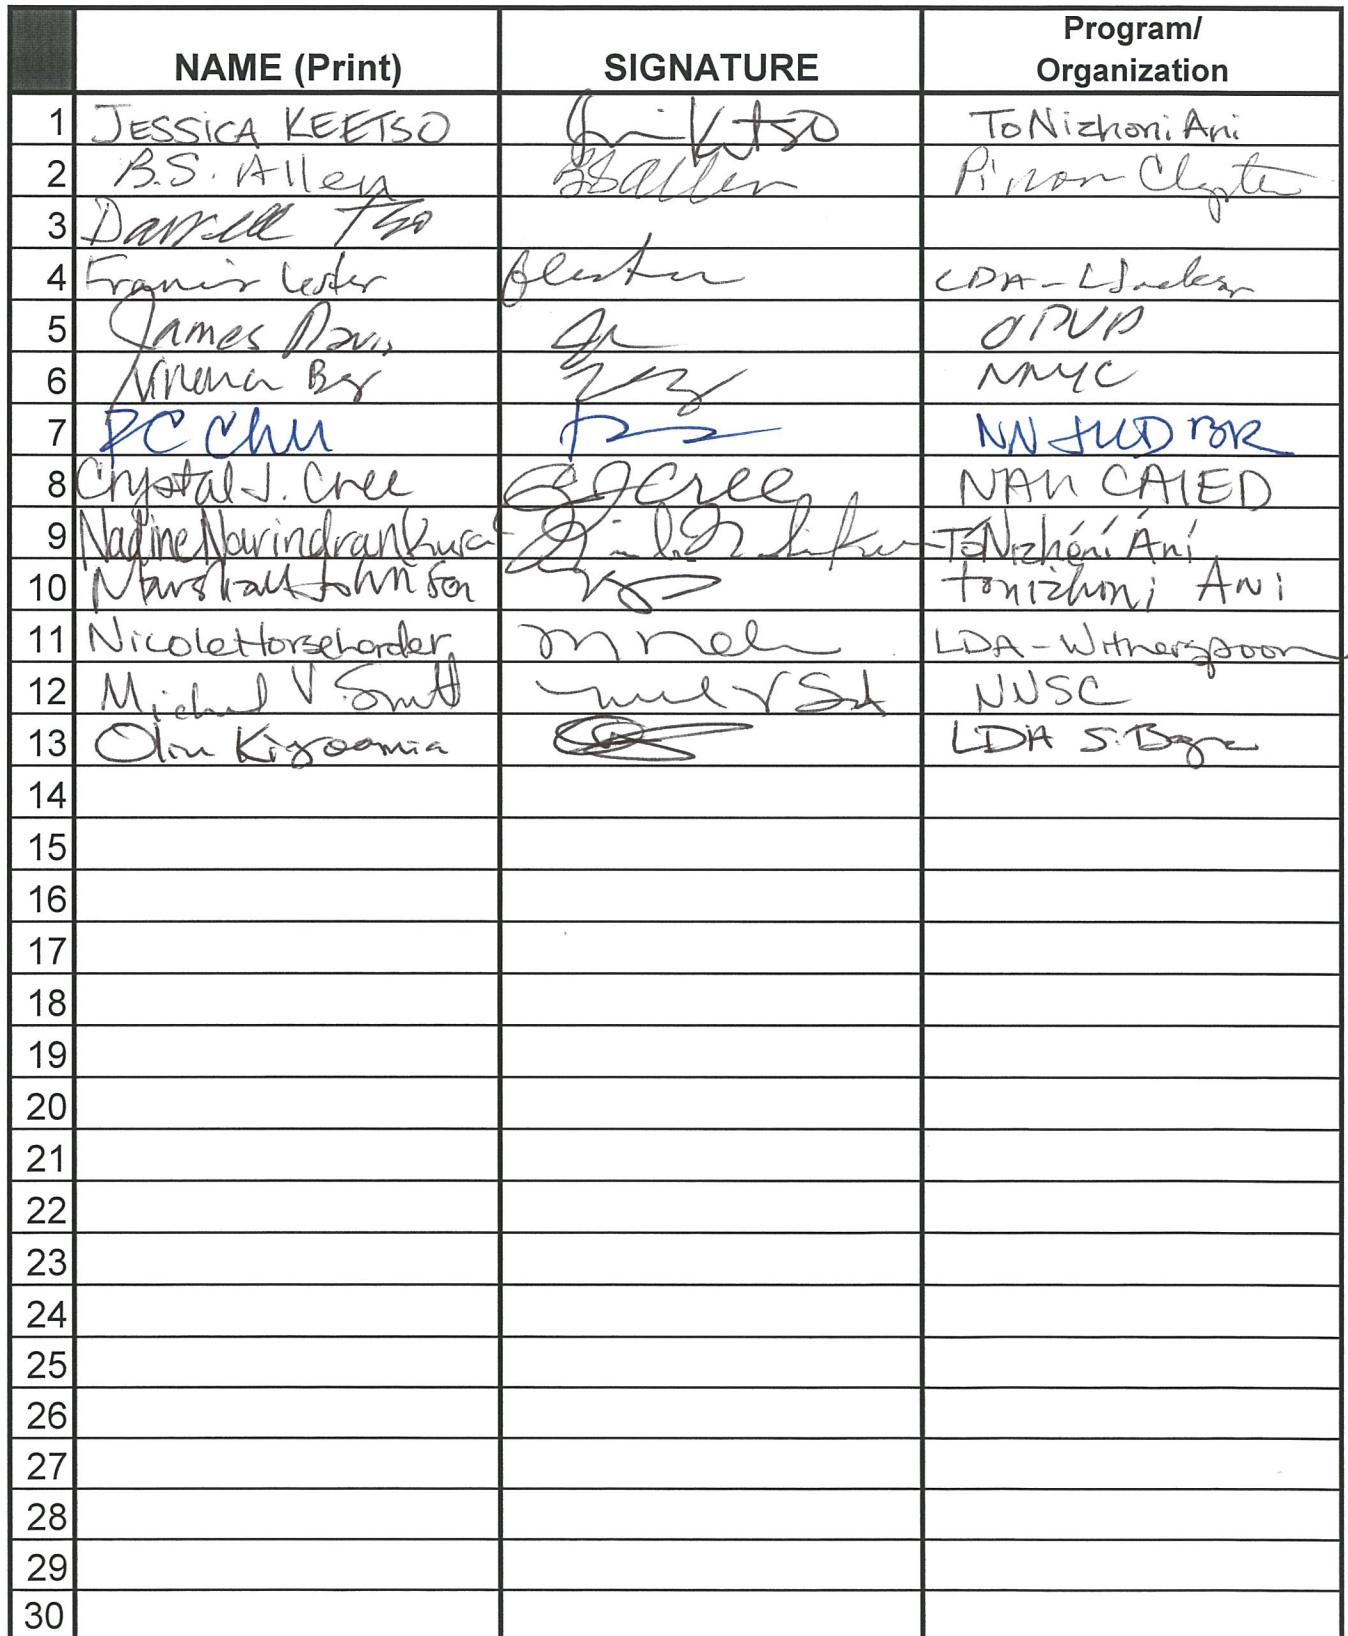 NAME (Print) SIGNATURE Program/
Organization
1 JESSICA KEETSO ToNizhoniAni
2 B.S. Allen BSAllen Pinon Chapter
3 Darrell Tso
4 Francis Lester LDA-
5 James Davis OPVP
6 NNYC
7 PC Chu NN JUD BR
8 Crystal J. Cree CJCree
9 Nadine Narindrankura TóNizhóní Ání
10 Marshall Johnson Tonizhoni ANi
11 Nicole Horseherder LDA-Witherspoon
12 Michael V Smith NNSC
13 Olin Kieyoomia LDA S. Begaye
14
15
16
17
18
19
20
21
22
23
24
25
26
27
28
29
30